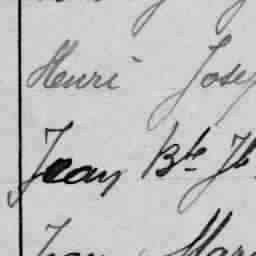 Henri Josep
Jean Bte Jh
Jean Mar